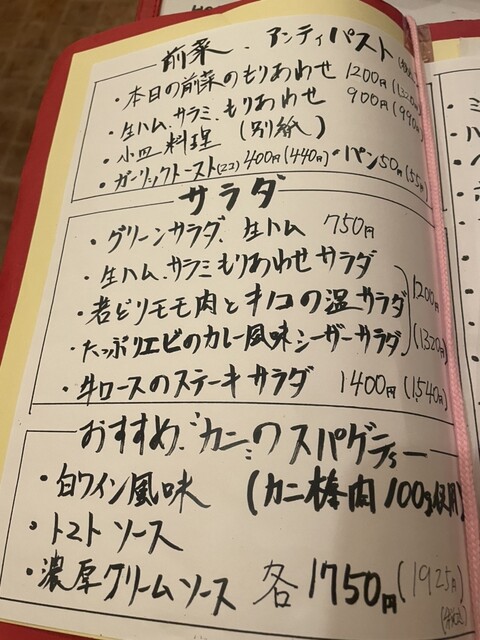 前菜、アンティパスト
・本日の前菜のもりあわせ 1200円
・生ハム、サラミ、もりあわせ 900円(990円)
・小皿料理 (別紙)
・ガーリックトースト(2コ)400円(440円)・パン50円(55
サラダ
・グリーンサラダ、生ハム 750円
・生ハム、サラミもりあわせサラダ
・若どりモモ肉とキノコの温サラダ 1200円
・たっぷりエビのカレー風味シーザーサラダ (1320円)
・牛ロースのステーキサラダ 1400円(1,540円)
おすすめ、"カニ"のスパゲティー
・白ワイン風味 (カニ棒肉100g使用)
・トマトソース
・濃厚クリームソース 各1750円(1925円)
(税込)